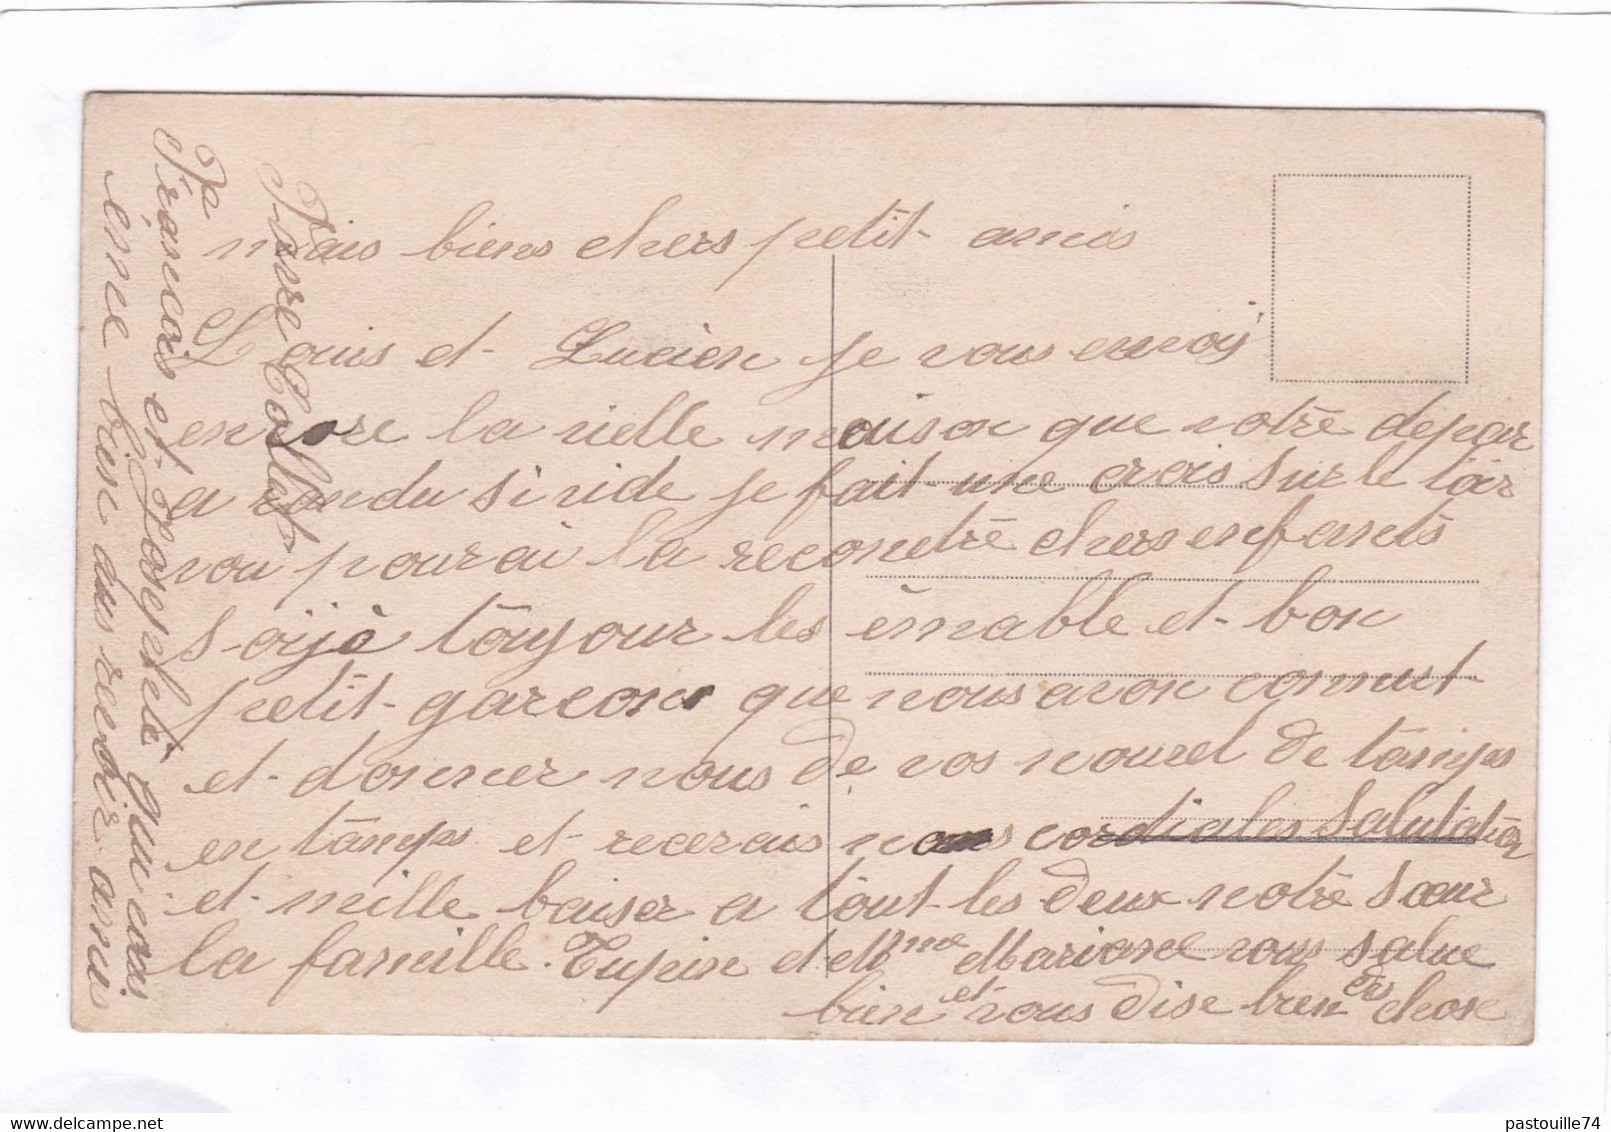 mais biens chers petit amis
Louis et Lucien je vous envoy
encore la vielle maison que votre depar
a randu si vide je fait une crois sur le
vou pourai la recontré chers enfants
soijé toujour les émable et bon
petit garcons que nous avon connut
et donner nous de vos nouvel de tamps
en tamps et recevais nos cordiales Salutation
et mille baiser a tout les deux notre sœur
la famille Tupin et Mme Mariane vous salue
bien et vous dise bien des chose
François et Josephete
éme bien aus revoir amis
pastouille74